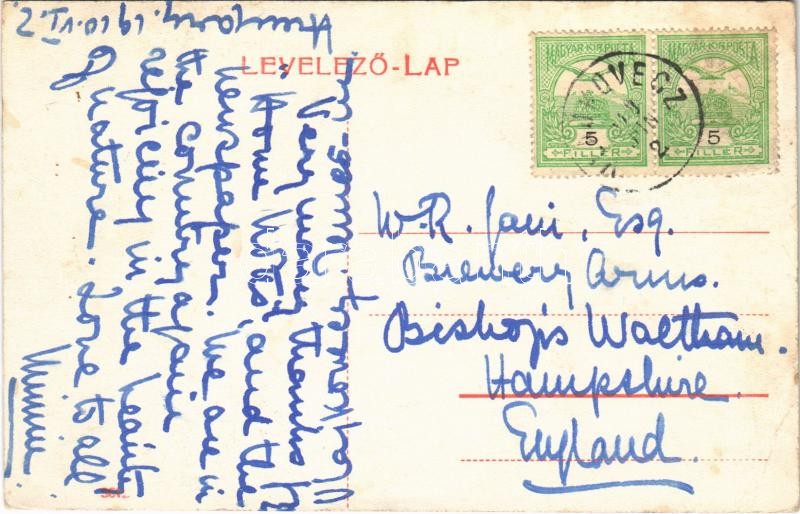 LEVELEZŐ-LAP
MAGYAR KIR. POSTA
5
FILLER
MAGYAR KIR. POSTA
5
FILLER
Hungary. 1910. VI. 2.
Very many thanks for
"Home Notes", and the
newspapers. We are in
the country again
rejoicing in the beauty
of nature. Love to all
Minnie
W. R. Jani, Esq.
Brewery Arms.
Bishop's Waltham.
Hampshire.
England.